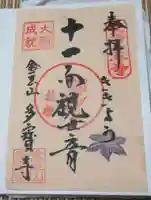 奉拝
ききょう
十一面観世音
大願
成就
金玉山 多寶寺